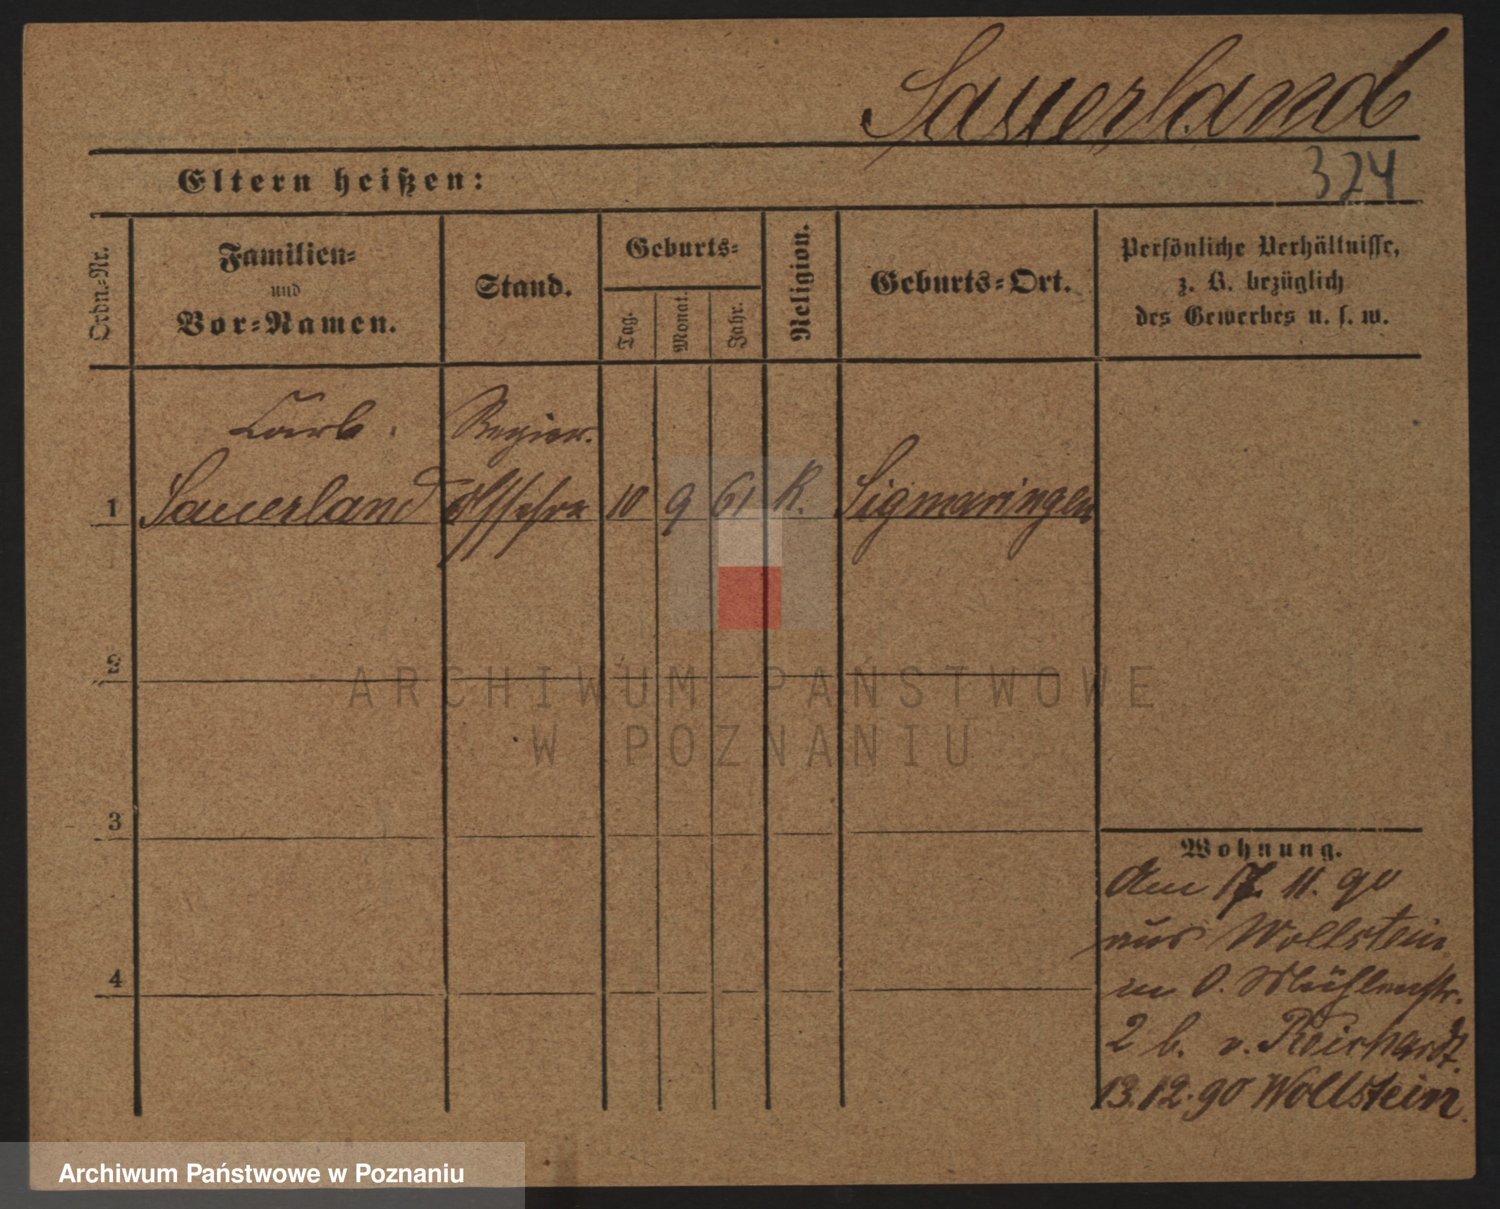 Sauerland
Eltern heißen:
324
Ordn.-Nr.
Familien-
und
Vor-Namen.
Stand.
Geburts-
Tag.
Monat.
Jahr.
Religion.
Geburts-Ort.
Persönliche Verhältnisse,
z. B. bezüglich
des Gewerbes u. s. w.
Carl
Regier.
1 Sauerland 10 9 61 K. Sigmaringen
2
3
4
Wohnung.
Am 17. 11. 90
aus Wollstein
n O. Mühlenstr.
2 b. v. Reichardt.
13.12.90 Wollstein.
ARCHIWUM PAŃSTWOWE
W POZNANIU
Archiwum Państwowe w Poznaniu